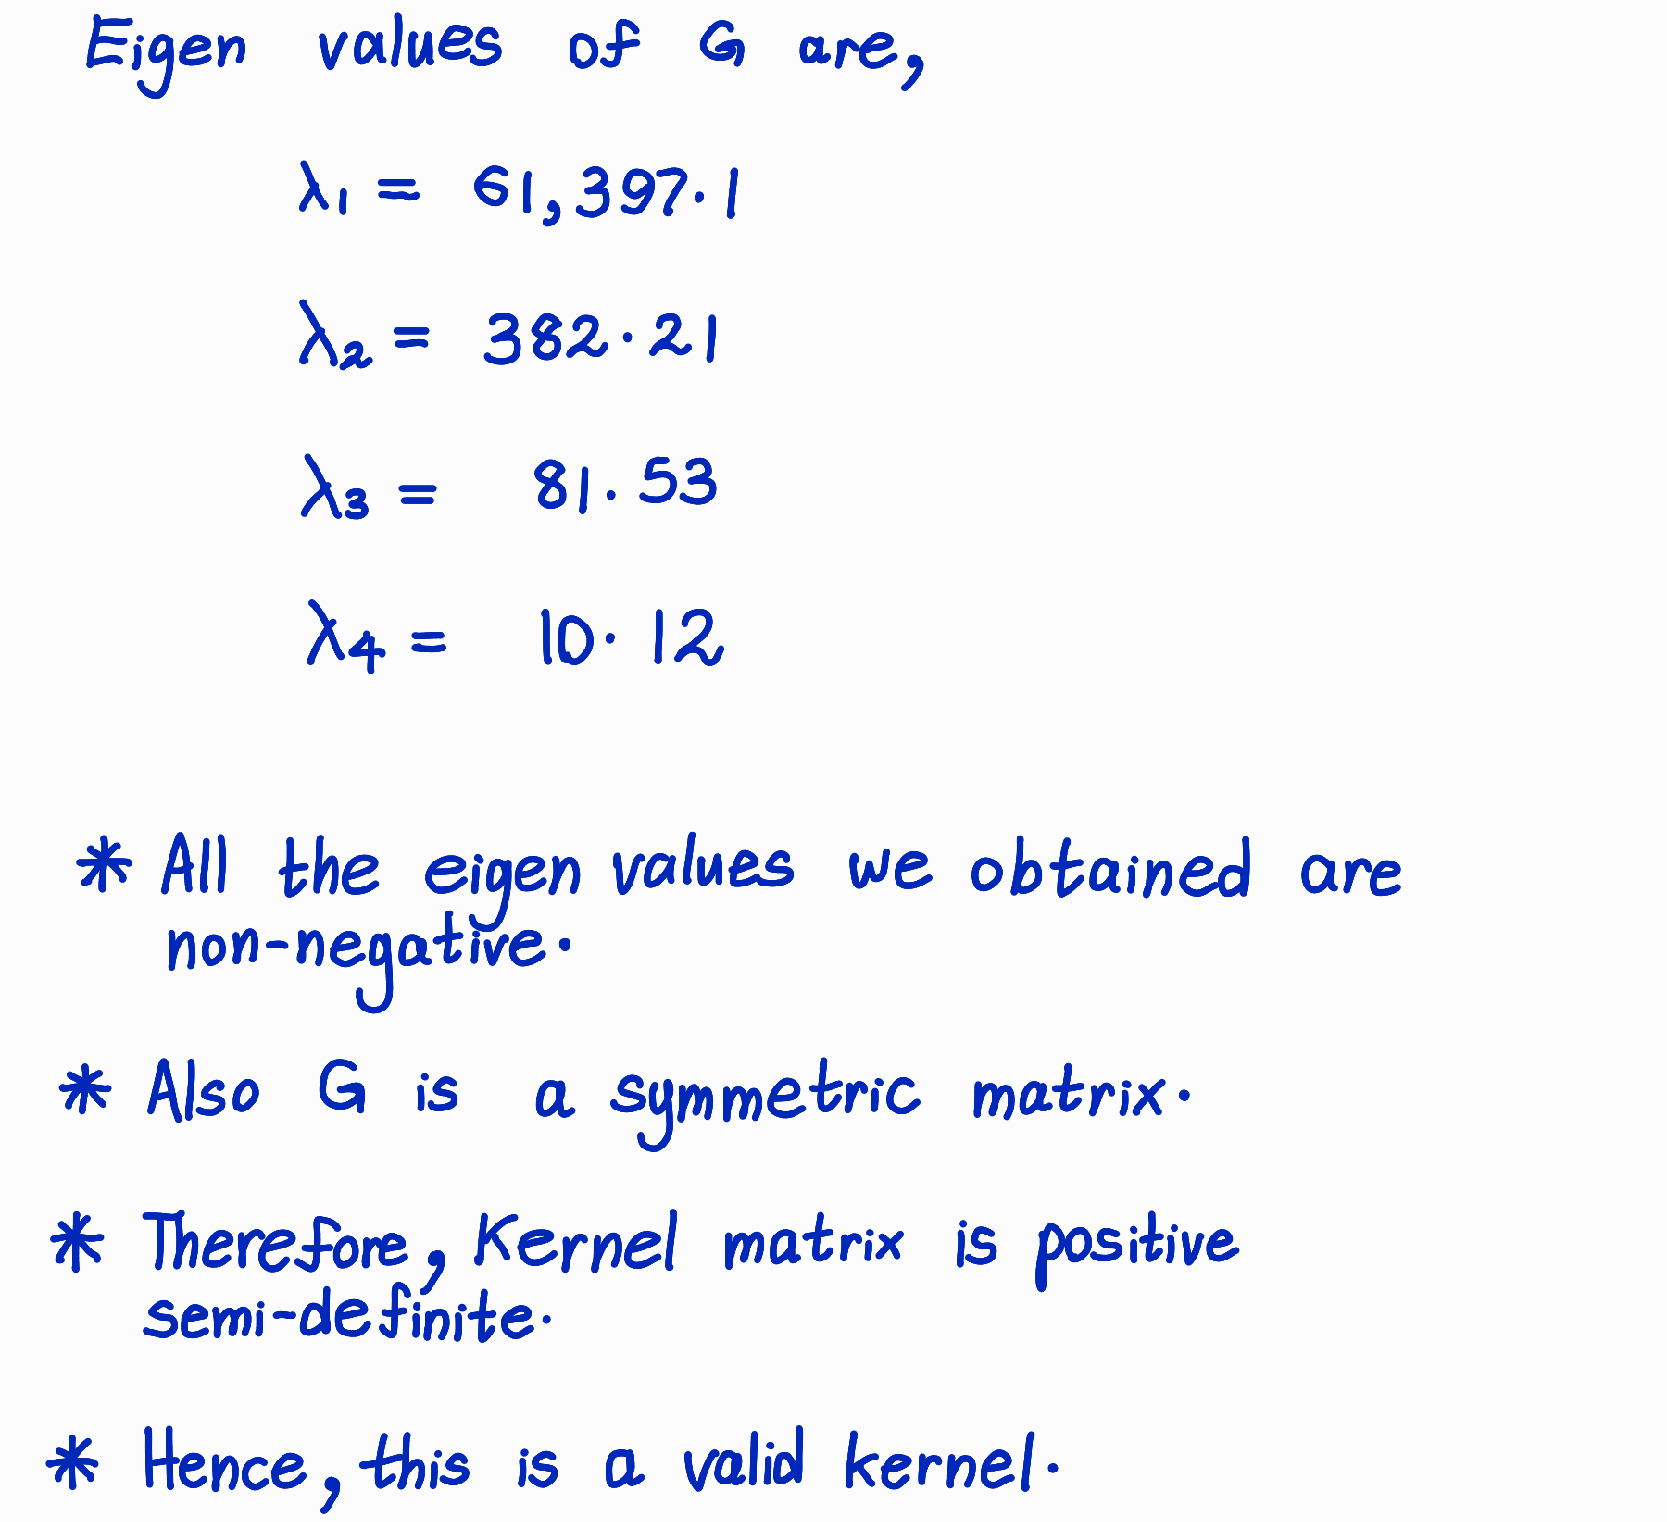 Eigen values of G are,
λ1 = 61,397.1
λ2 = 382.21
λ3 = 81.53
λ4 = 10.12
* All the eigen values we obtained are
non-negative.
* Also G is a symmetric matrix.
* Therefore, Kernel matrix is positive
semi-definite.
* Hence, this is a valid kernel.